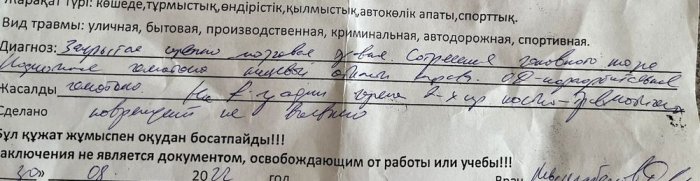 Жарақат түрі: көшеде,тұрмыстық,өндірістік,қылмыстық,автокөлік апаты,спорттық.
Вид травмы: уличная, бытовая, производственная, криминальная, автодорожная, спортивная.
Диагноз: Закрытая черепно мозговая травма. Сотрясение головного мозга
гематома лицевой
Жасалды гематома. На R-графии черепа 2-х пр костно-травматич
Сделано повреждений не выявлено
Бұл құжат жұмыспен оқудан босатпайды!!!
аключения не является документом, освобождающим от работы или учебы!!!
30» 08. 2022 год Врач